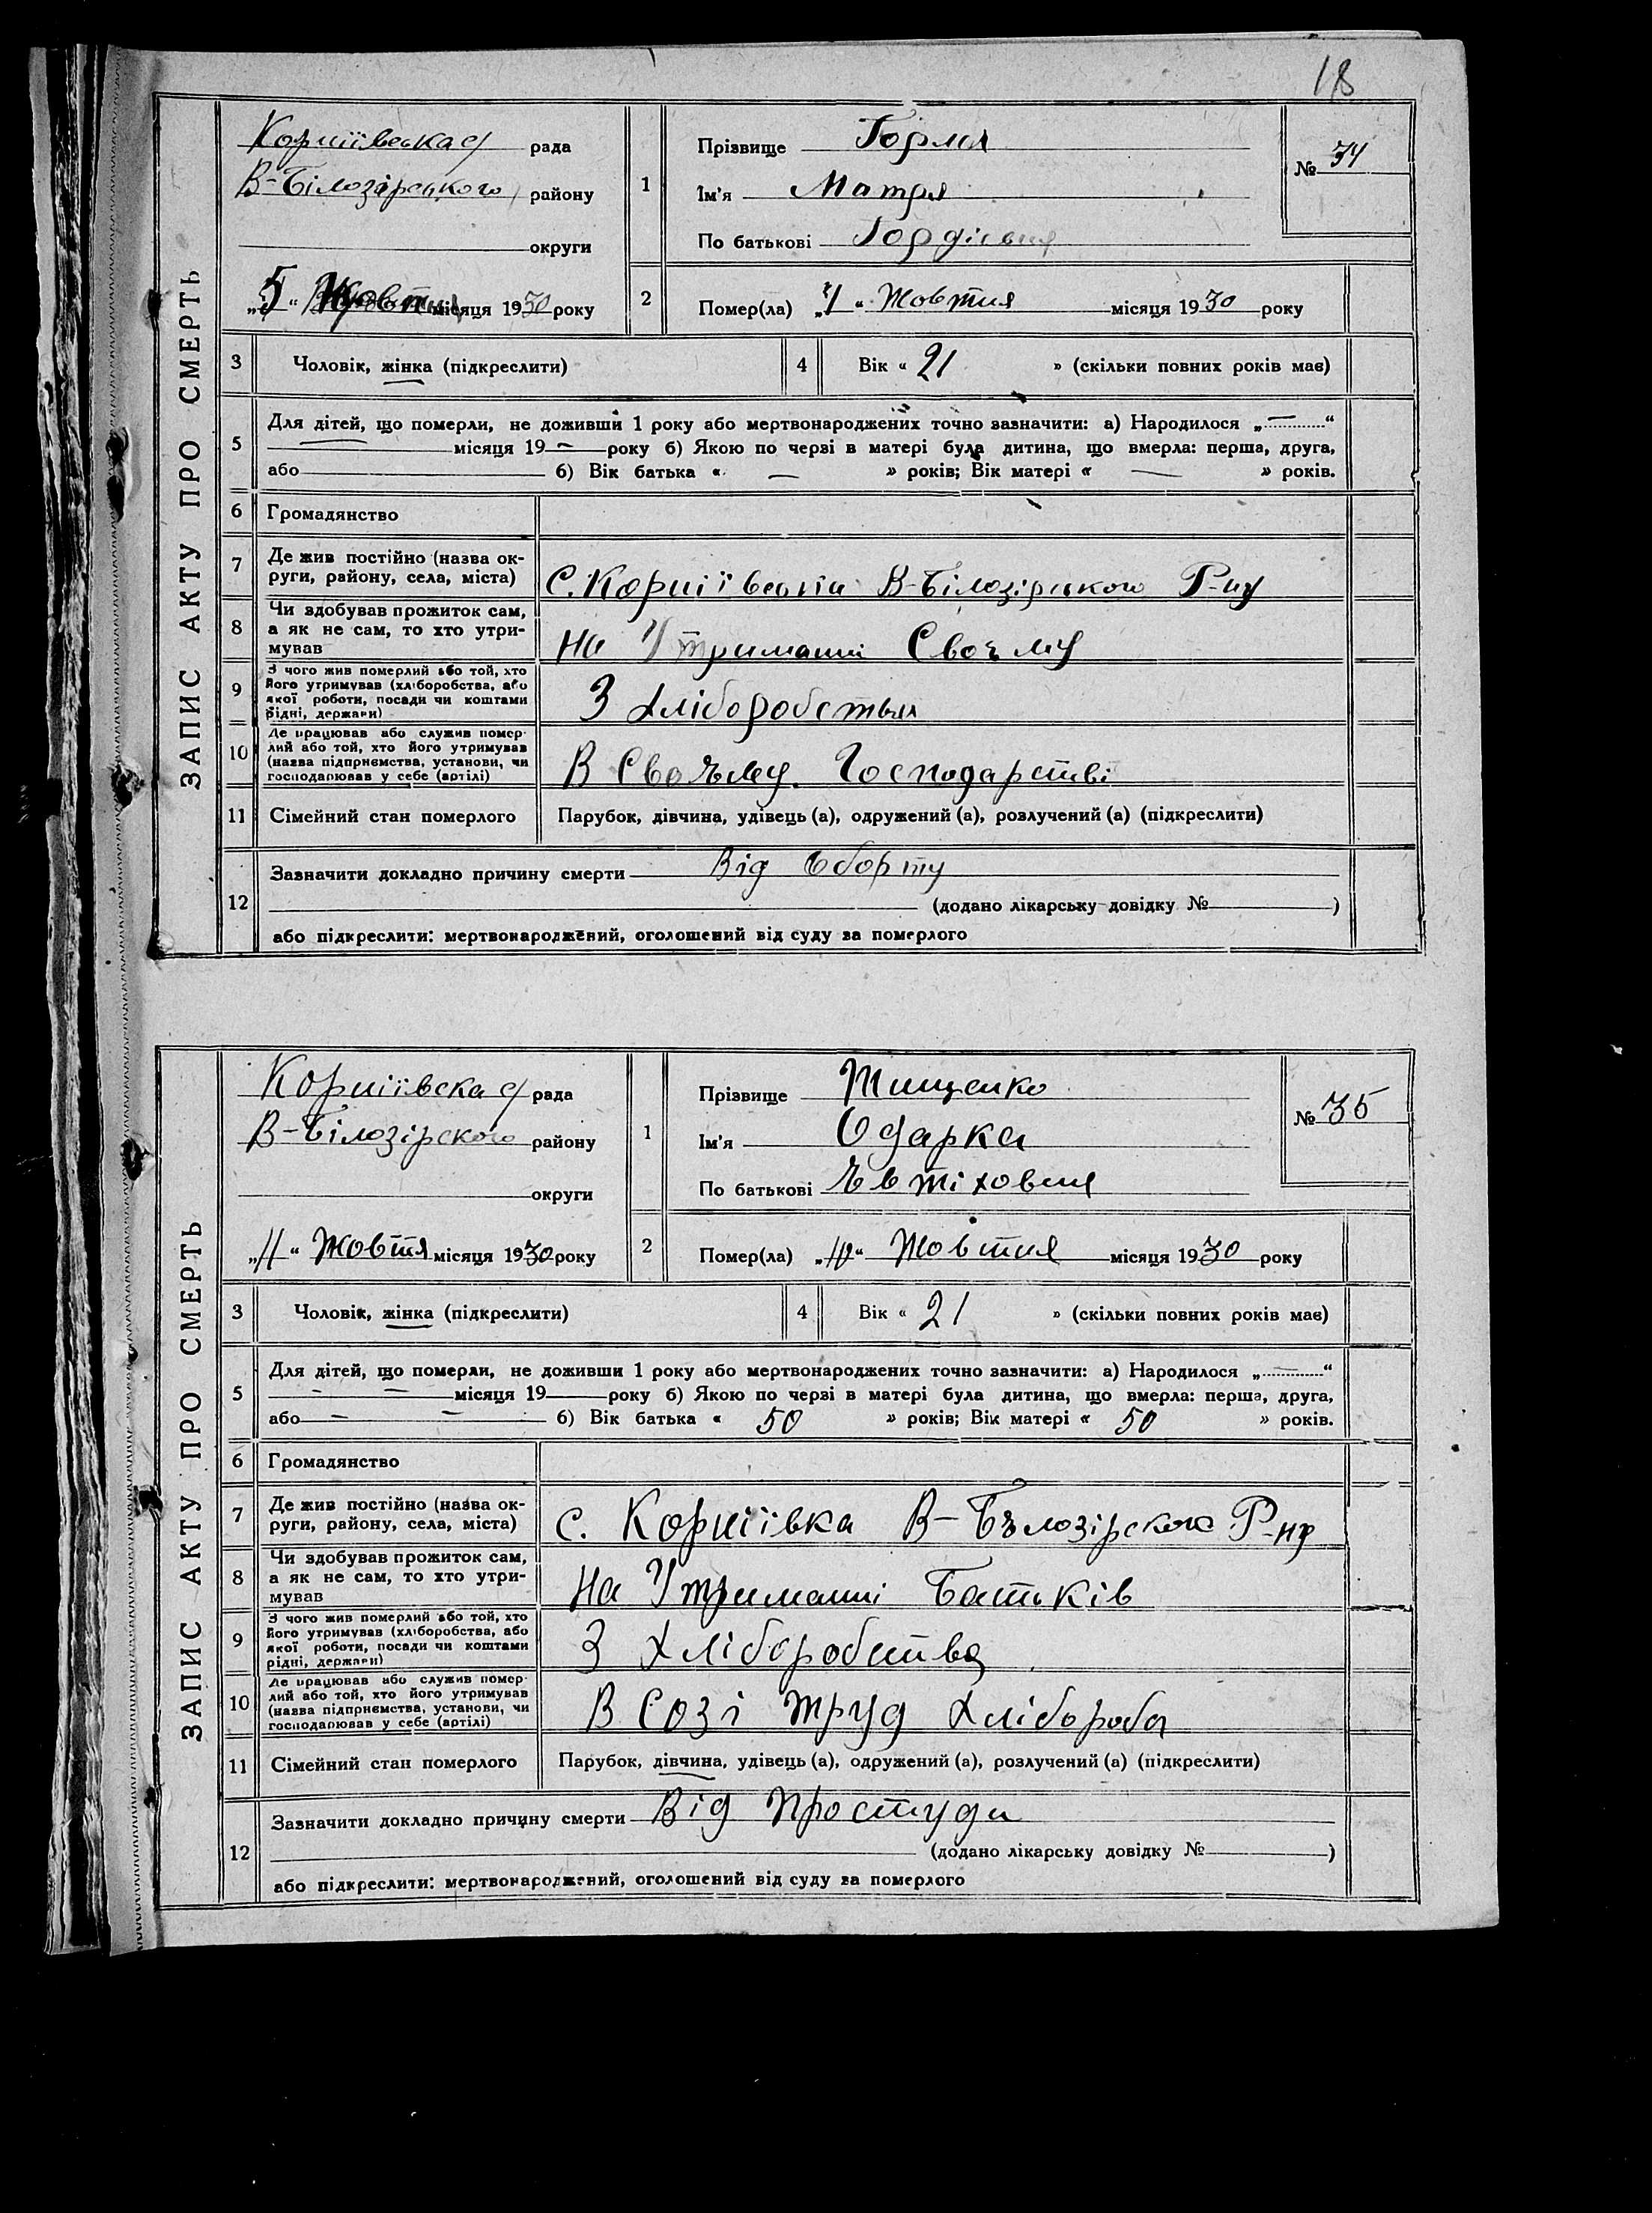 18
ЗАПИС АКТУ ПРО СМЕРТЬ
Корніївська рада
В-Білозірського району
округи
„5“ Жовтня місяця 1930 року
1
Прізвище
Ім'я Мотря
По батькові Гордієвня
№ 34
2 Помер(ла) „4“ Жовтня місяця 1930 року
3 Чоловік, жінка (підкреслити)
4 Вік « 21 » (скільки повних років має)
5 Для дітей, що померли, не доживши 1 року або мертвонароджених точно зазначити: а) Народилося „—“
— місяця 19— року б) Якою по черзі в матері була дитина, що вмерла: перша, друга,
або 6) Вік батька « — » років; Вік матері « — » років.
6 Громадянство
7 Де жив постійно (назва ок-
руги, району, села, міста)
С. Корніївська В-Білозірського Р-ну
8 Чи здобував прожиток сам,
а як не сам, то хто утри-
мував
На Утриманні Своъму
9 З чого жив померлий або той, хто
його утримував (хліборобства, або
якої роботи, посади чи коштами
рідні, держави)
З Хліборобства
10 Де працював або служив помер-
лий або той, хто його утримував
(назва підприємства, установи, чи
господарював у себе (артілі)
В Своъму Господарстві
11 Сімейний стан померлого
Парубок, дівчина, удівець (а), одружений (а), розлучений (а) (підкреслити)
12 Зазначити докладно причину смерти Від Оборту
(додано лікарську довідку № )
або підкреслити: мертвонароджений, оголошений від суду за померлого
ЗАПИС АКТУ ПРО СМЕРТЬ
Корніївская рада
В-Білозірского району
округи
„11“ Жовтя місяця 1930 року
1
Прізвище Тищенко
Ім'я Одарка
По батькові Ъвтіховня
№ 35
2 Помер(ла) „10“ Жовтня місяця 1930 року
3 Чоловік, жінка (підкреслити)
4 Вік « 21 » (скільки повних років має)
5 Для дітей, що померли, не доживши 1 року або мертвонароджених точно зазначити: а) Народилося „—“
— — місяця 19 року б) Якою по черзі в матері була дитина, що вмерла: перша, друга,
або — — 6) Вік батька « 50 » років; Вік матері « 50 » років.
6 Громадянство
7 Де жив постійно (назва ок-
руги, району, села, міста)
с. Корніївка В-Бълозірского Р-ну
8 Чи здобував прожиток сам,
а як не сам, то хто утри-
мував
На Утриманні Батьків
9 З чого жив померлий або той, хто
його утримував (хліборобства, або
якої роботи, посади чи коштами
рідні, держави)
З Хліборобства
10 Де працював або служив помер-
лий або той, хто його утримував
(назва підприємства, установи, чи
господарював у себе (артілі)
В Созі труд Хлібороба
11 Сімейний стан померлого
Парубок, дівчина, удівець (а), одружений (а), розлучений (а) (підкреслити)
12 Зазначити докладно причину смерти Від Простуди
(додано лікарську довідку № )
або підкреслити: мертвонароджений, оголошений від суду за померлого